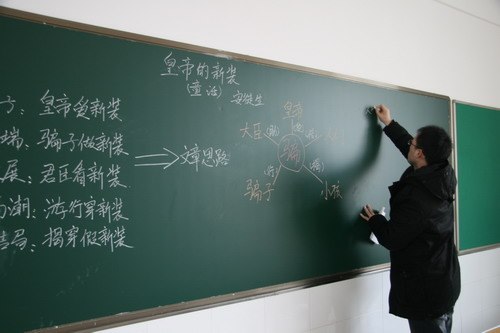 皇帝的新装
(童话) 安徒生
子：皇帝爱新装
端：骗子做新装
展：君臣看新装
高潮：游行穿新装
结局：揭穿假新装
文章思路
皇帝
大臣
骗
骗子
小孩